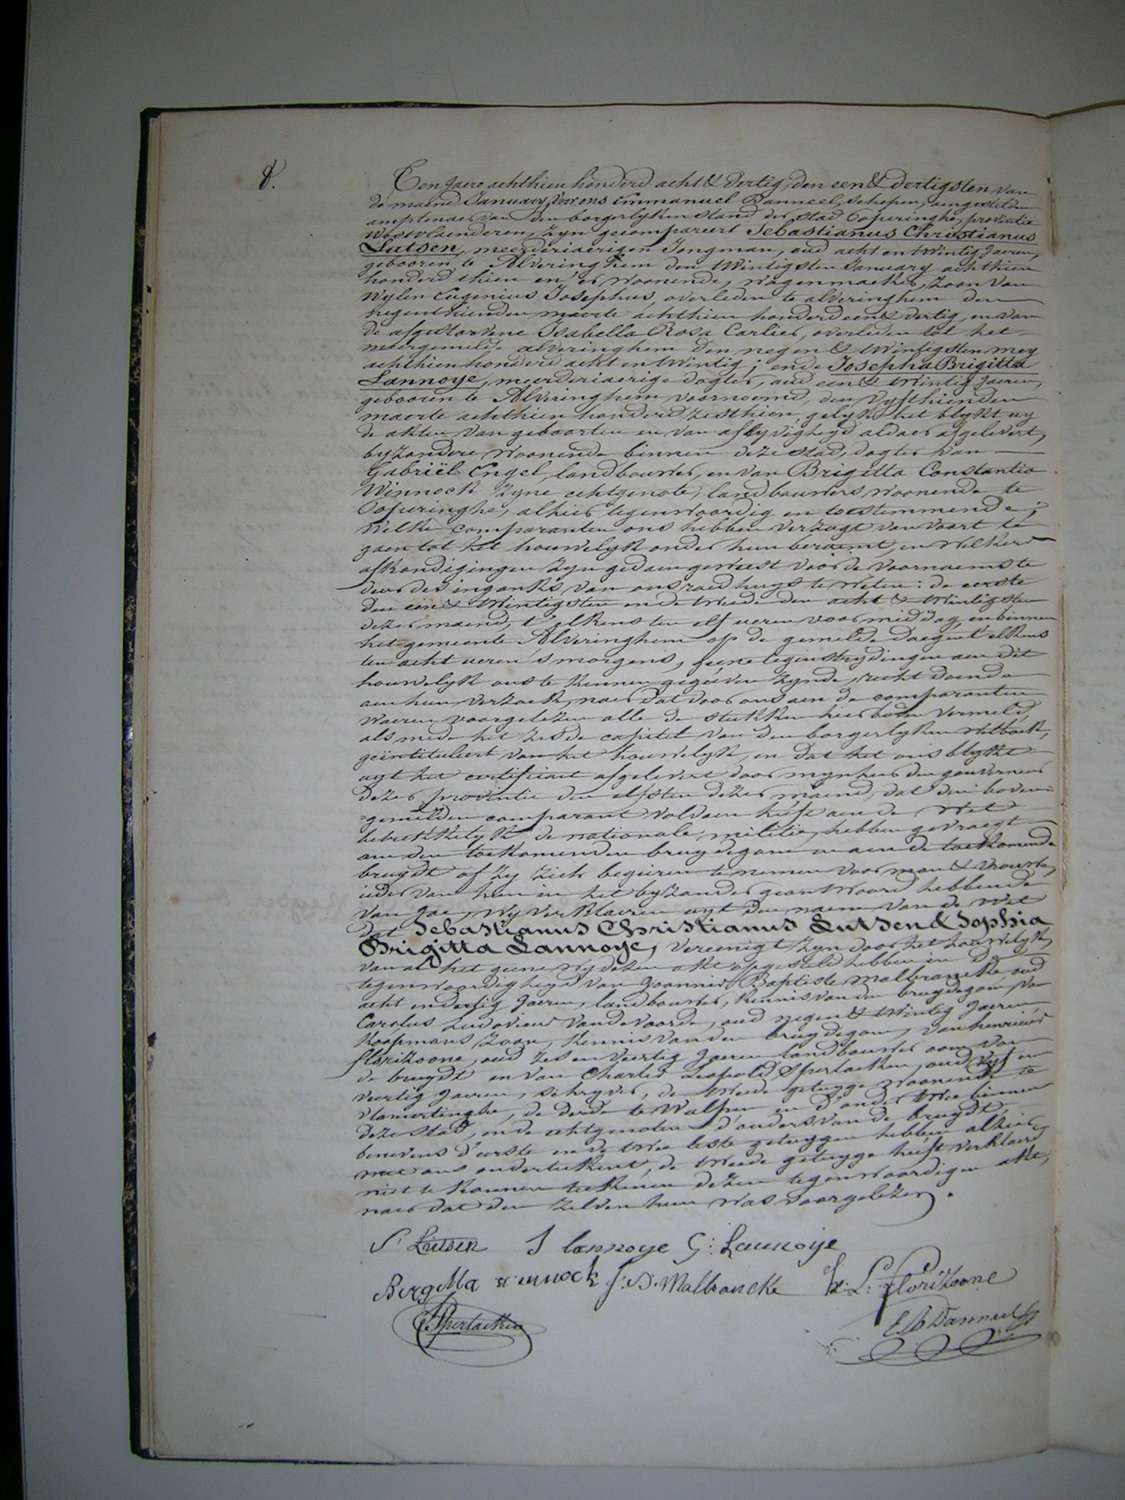 8.
Ten Jaere achthien honderd acht & dertig, den een & dertigsten van
de maend January, voor ons Emmanuel Banneel, schepen, aengestelden
amptenaer van den borgerlyken stand der stad Poperinghe, provintie
Westvlaenderen, zyn gecompareert Sebastianus Christianus
Lutsen, meerderjaerigen Jongman, oud acht en twintig Jaeren,
gebooren te Alveringhem den twintigsten January achthien
honderd thien en er woonende, wagenmaeker, zoon van
wylen Eugenius Josephus, overleden te alveringhem den
negenthienden maerte achthien honderd een & dertig, en van
de afgestorvene Isabella Rosa Carlier, overleden tot het
meergemelde alveringhem den negen & twintigsten mey
achthien honderd acht en twintig; ende Josepha Brigitta
Lannoye, meerderjaerige dogter, oud een & twintig Jaeren,
gebooren te Alveringhem voornoemd, den vyfthienden
maerte achthien honderd zesthien, gelyk het blykt uy
de akten van geboorten en van aflyvigheyd aldaer afgelevert,
byzondere woonende binnen deze stad, dogter van
Gabriël Engel, landbouwer, en van Brigitta Constantia
Winnock zyne echtgenote, landbouwers woonende te
Popuringhe, alhier tegenwoordig en toestemmende;
Welke comparanten ons hebben verzogt van voort te
gaen tot het houwelyk onder hun beraemt, en welkers
afkondigingen zyn gedaen geweest voor de voornaemste
deur des ingangs van ons raedhuys te weten: de eerste
den een & twintigsten ende tweede den acht & twintigsten
dezer maend, t'elkens ten elf ueren voor middag, en binnen
het gemeente Alveringhem op de gemelde daegen t'elkens
ten acht ueren s'morgens, geene tegenstrydingen aen dit
houwelyk ons te kennen gegeven zynde, recht doende
aen hun verzoek, naer dat door ons aen de comparanten
waeren voorgelezen alle de stukken hier boven vermeld,
als mede het zesde capittel van den borgerlyken wetboek,
geïntituleert van het houwelyk, en dat het ons blykt
uyt het certificaet afgelevert door mynheer den gouverneur
dezer provintie den elfsten dezer maend, dat den boven
gemelden comparant voldaen heeft aen de wet
betrekkelyk de nationale militie, hebben gevraegt
aen den toekomenden bruydegom en aen de toekomende
bruydt of zy zich begeeren te nemen voor man & vrouw,
ieder van hen in het byzonder geantwoord hebbende
van Jae, wy verklaeren uyt den naem van de wet
dat Sebastianus Christianus Lutsen & Sophia
Brigitta Lannoye, vereenigt zyn door het houwelyk,
van al het geene wy dezen akt opgesteld hebben in de
tegenwoordigheyd van Joannes Baptiste Malbrancke, oud
acht en dertig Jaeren, landbouwer, kennis van den bruydegom, van
Carolus Ludovicus Vandevoorde, oud negen & twintig Jaeren,
koopmans zoon, kennis van den bruydegom, van henricus
florizoone, oud zes en veertig Jaeren landbouwer oom van
de bruydt en van Charles Leopold Sperlaeken, oud vyf en
veertig Jaeren, schryver, de tweede getuyge woonende te
vlamertinghe, de derde te Watou en d'ander twee binnen
deze stad, ende echtgenoten, d'ouders van de bruydt,
benevens d'eerste en de twee leste getuygen hebben alhier
met ons onderteekent, de tweede getuyge heeft verklaerd
niet te konnen teekenen dezen tegenwoordigen akt,
naer dat den zelven hun was voorgelezen.
S. Lutsen   J lannoye   G: Lannoije
Bergitta winnock   J. B. Malbrancke   h: L: Florizoone
Sperlaeken   E. Banneel